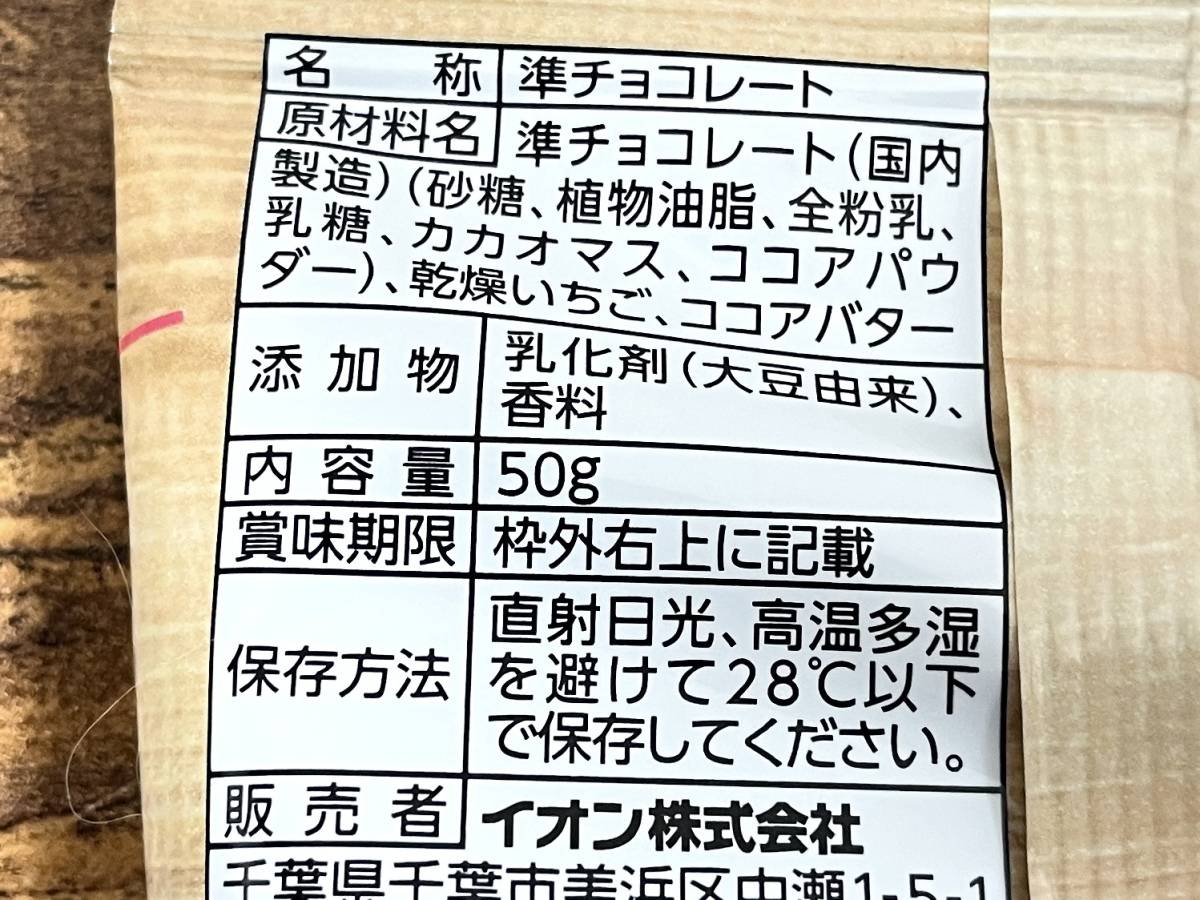 名称 準チョコレート
原材料名 準チョコレート(国内
製造)(砂糖、植物油脂、全粉乳、
乳糖、カカオマス、ココアパウ
ダー)、乾燥いちご、ココアバター
添加物 乳化剤(大豆由来)、
香料
内容量 50g
賞味期限 枠外右上に記載
保存方法 直射日光、高温多湿
を避けて28℃以下
で保存してください。
販売者 イオン株式会社
千葉県千葉市美浜区中瀬1-5-1